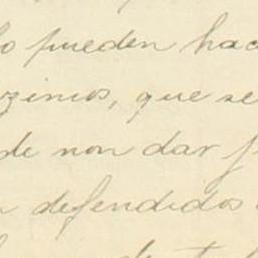 lo pueden hac
zinios, que se
de non dar f
defendidos